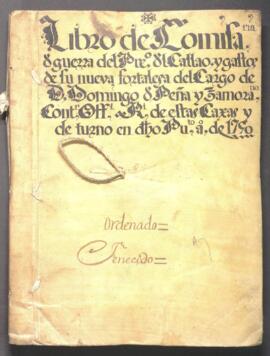 Libro de Comisa
ð guerra del Pre.º ðl Callao, y gastos
de su nueva fortaleza del Cargo de
D. Domingo ð Peña y Zamora
Cont.ᵒʳ Off.ˡ R.ˡ de estas Caxas y
de turno en dho Pu.ᵗᵒ a.º de 1750
Ordenado=
Fenecido=